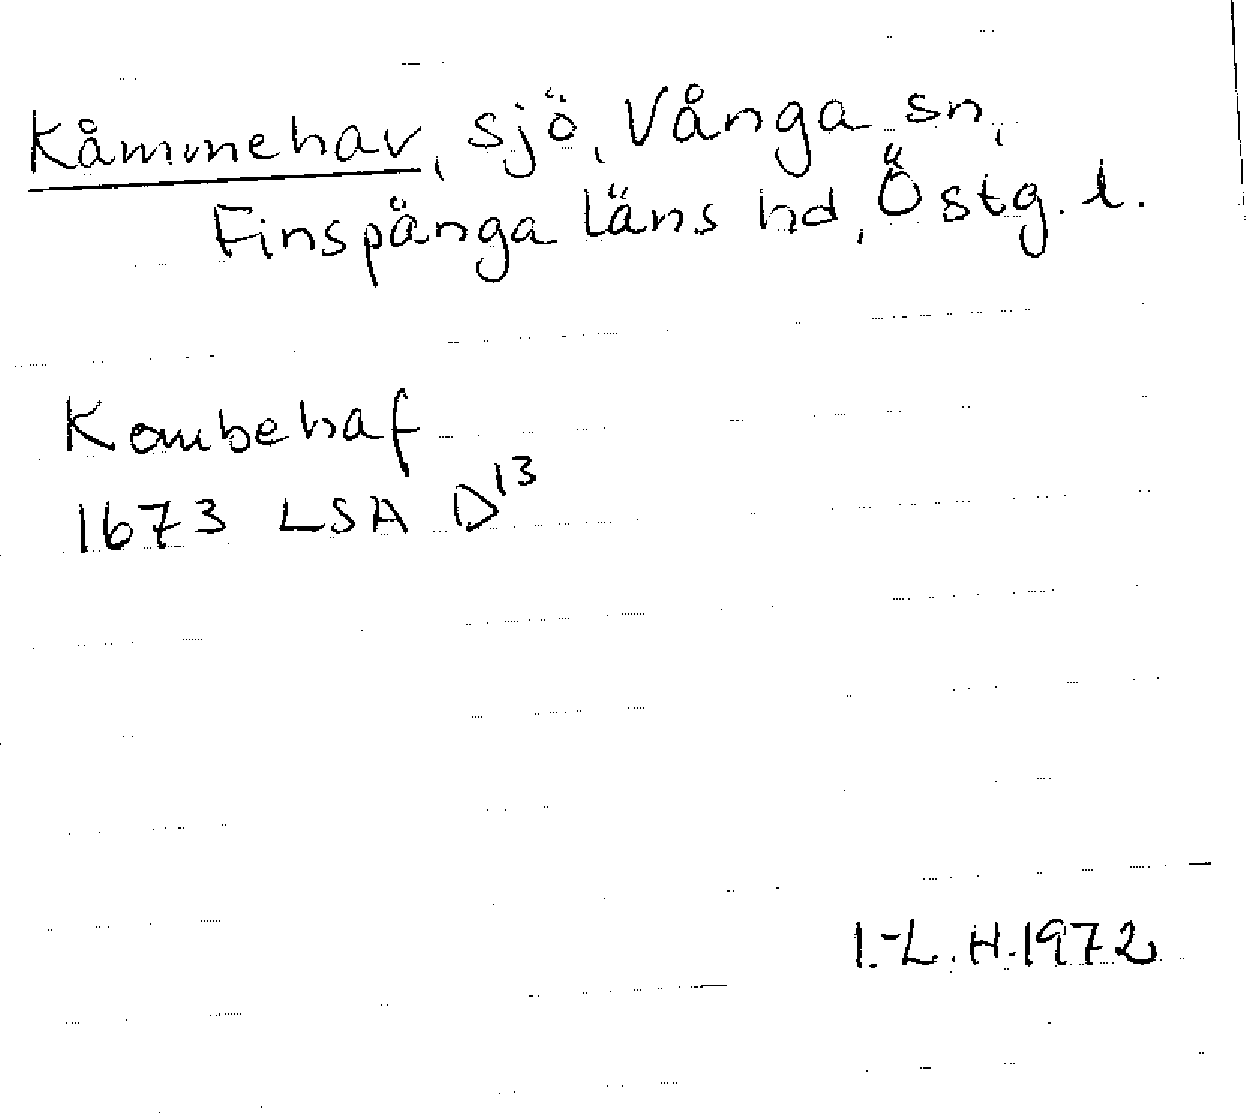 Kåmmehav, sjö, Vånga sn,
Finspånga läns hd, Östg. l.
Kombehaf
1673 LSA D13
I.-L. H. 1972